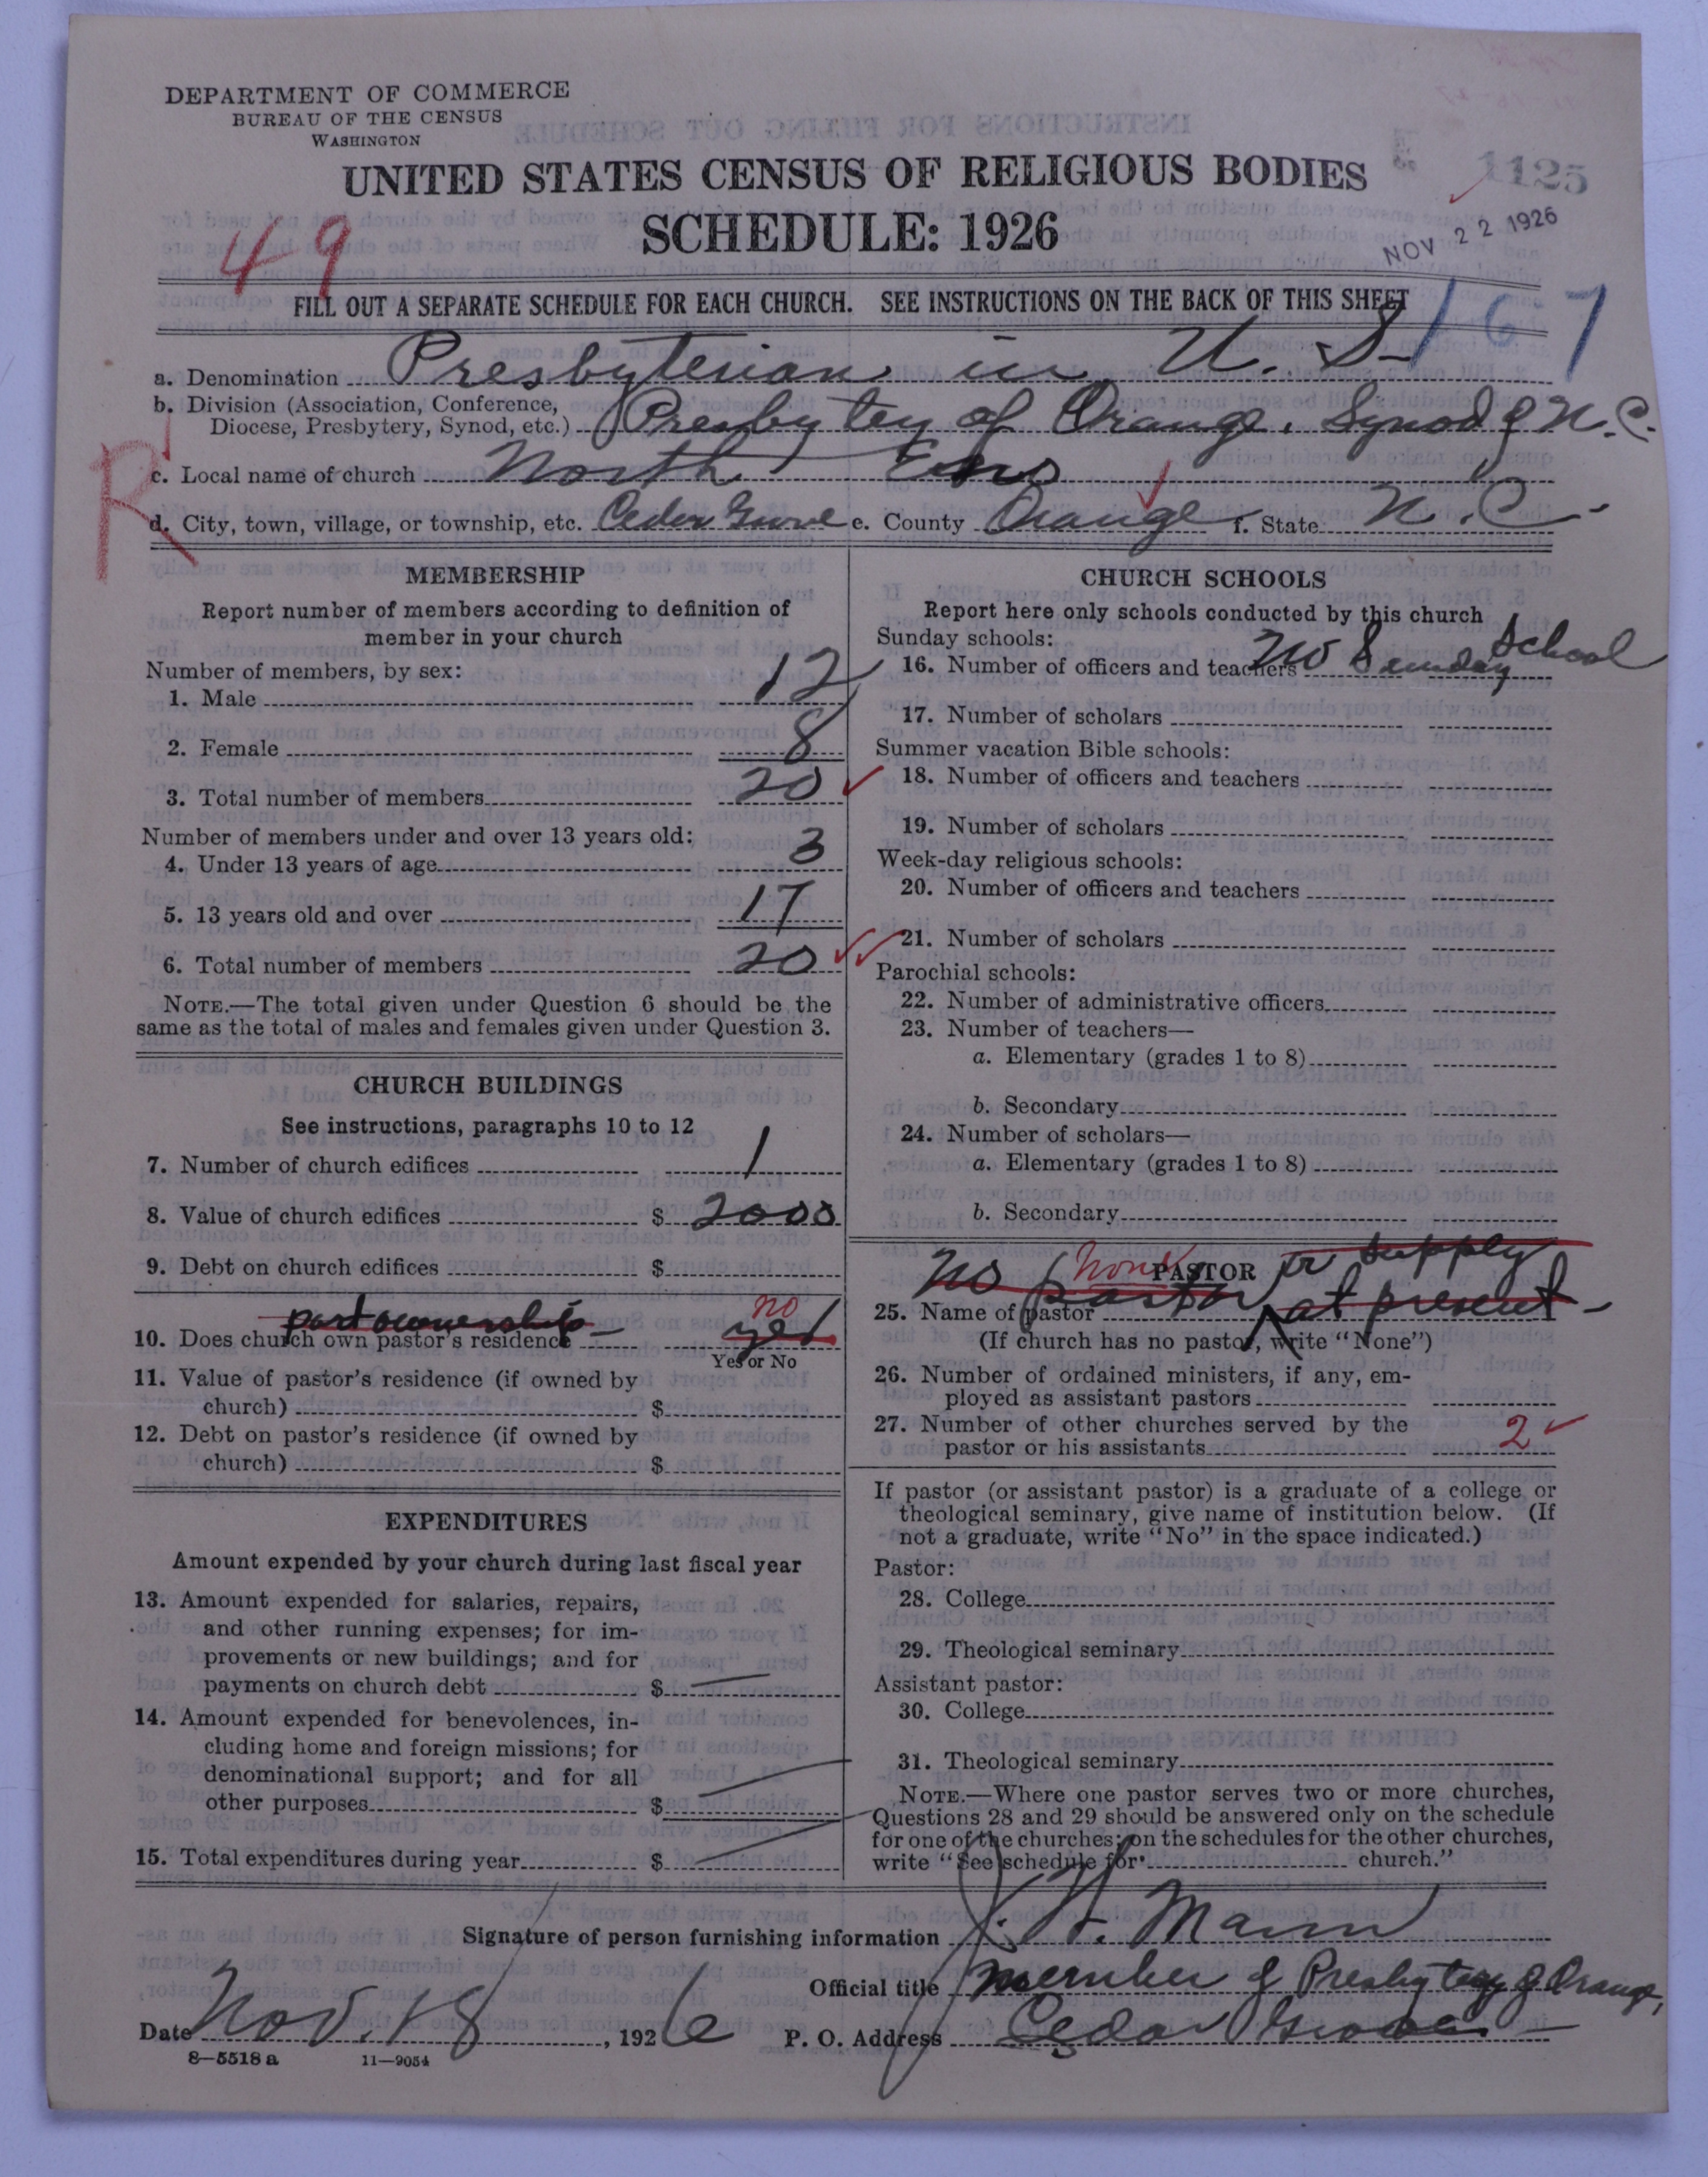 DEPARTMENT OF COMMERCE
BUREAU OF THE CENSUS
WASHINGTON
UNITED STATES CENSUS OF RELIGIOUS BODIES
1125
SCHEDULE: 1926
NOV 22 1926
49
FILL OUT A SEPARATE SCHEDULE FOR EACH CHURCH. SEE INSTRUCTIONS ON THE BACK OF THIS SHEET
167
a. Denomination Presbyterian in U. S.
b. Division (Association, Conference,
Diocese, Presbytery, Synod, etc.) Presbytery of Orange, Synod of N. C.
R
c. Local name of church North Eno
d. City, town, village, or township, etc. Cedar Grove e. County Orange f. State N. C.
MEMBERSHIP
Report number of members according to definition of
member in your church
Number of members, by sex:
1. Male 12
2. Female 8
3. Total number of members 20
Number of members under and over 13 years old:
4. Under 13 years of age 3
5. 13 years old and over 17
6. Total number of members 20
NOTE.—The total given under Question 6 should be the
same as the total of males and females given under Question 3.
CHURCH BUILDINGS
See instructions, paragraphs 10 to 12
7. Number of church edifices 1
8. Value of church edifices $ 2000
9. Debt on church edifices $
part ownership no
10. Does church own pastor's residence yes
Yes or No
11. Value of pastor's residence (if owned by
church) $
12. Debt on pastor's residence (if owned by
church) $
EXPENDITURES
Amount expended by your church during last fiscal year
13. Amount expended for salaries, repairs,
and other running expenses; for im-
provements or new buildings; and for
payments on church debt $ —
14. Amount expended for benevolences, in-
cluding home and foreign missions; for
denominational support; and for all
other purposes $ —
15. Total expenditures during year $ —
CHURCH SCHOOLS
Report here only schools conducted by this church
Sunday schools:
16. Number of officers and teachers No Sunday School
17. Number of scholars
Summer vacation Bible schools:
18. Number of officers and teachers
19. Number of scholars
Week-day religious schools:
20. Number of officers and teachers
21. Number of scholars
Parochial schools:
22. Number of administrative officers
23. Number of teachers—
a. Elementary (grades 1 to 8)
b. Secondary
24. Number of scholars—
a. Elementary (grades 1 to 8)
b. Secondary
No None PASTOR or supply
25. Name of pastor pastor at present
(If church has no pastor, write "None")
26. Number of ordained ministers, if any, em-
ployed as assistant pastors
27. Number of other churches served by the
pastor or his assistants 2
If pastor (or assistant pastor) is a graduate of a college or
theological seminary, give name of institution below. (If
not a graduate, write "No" in the space indicated.)
Pastor:
28. College
29. Theological seminary
Assistant pastor:
30. College
31. Theological seminary
NOTE.—Where one pastor serves two or more churches,
Questions 28 and 29 should be answered only on the schedule
for one of the churches; on the schedules for the other churches,
write "See schedule for church."
Signature of person furnishing information J. W. Mann
Official title member of Presbytery of Orange,
Date Nov. 18, 1926 P. O. Address Cedar Grove
8—5518 a 11—9054